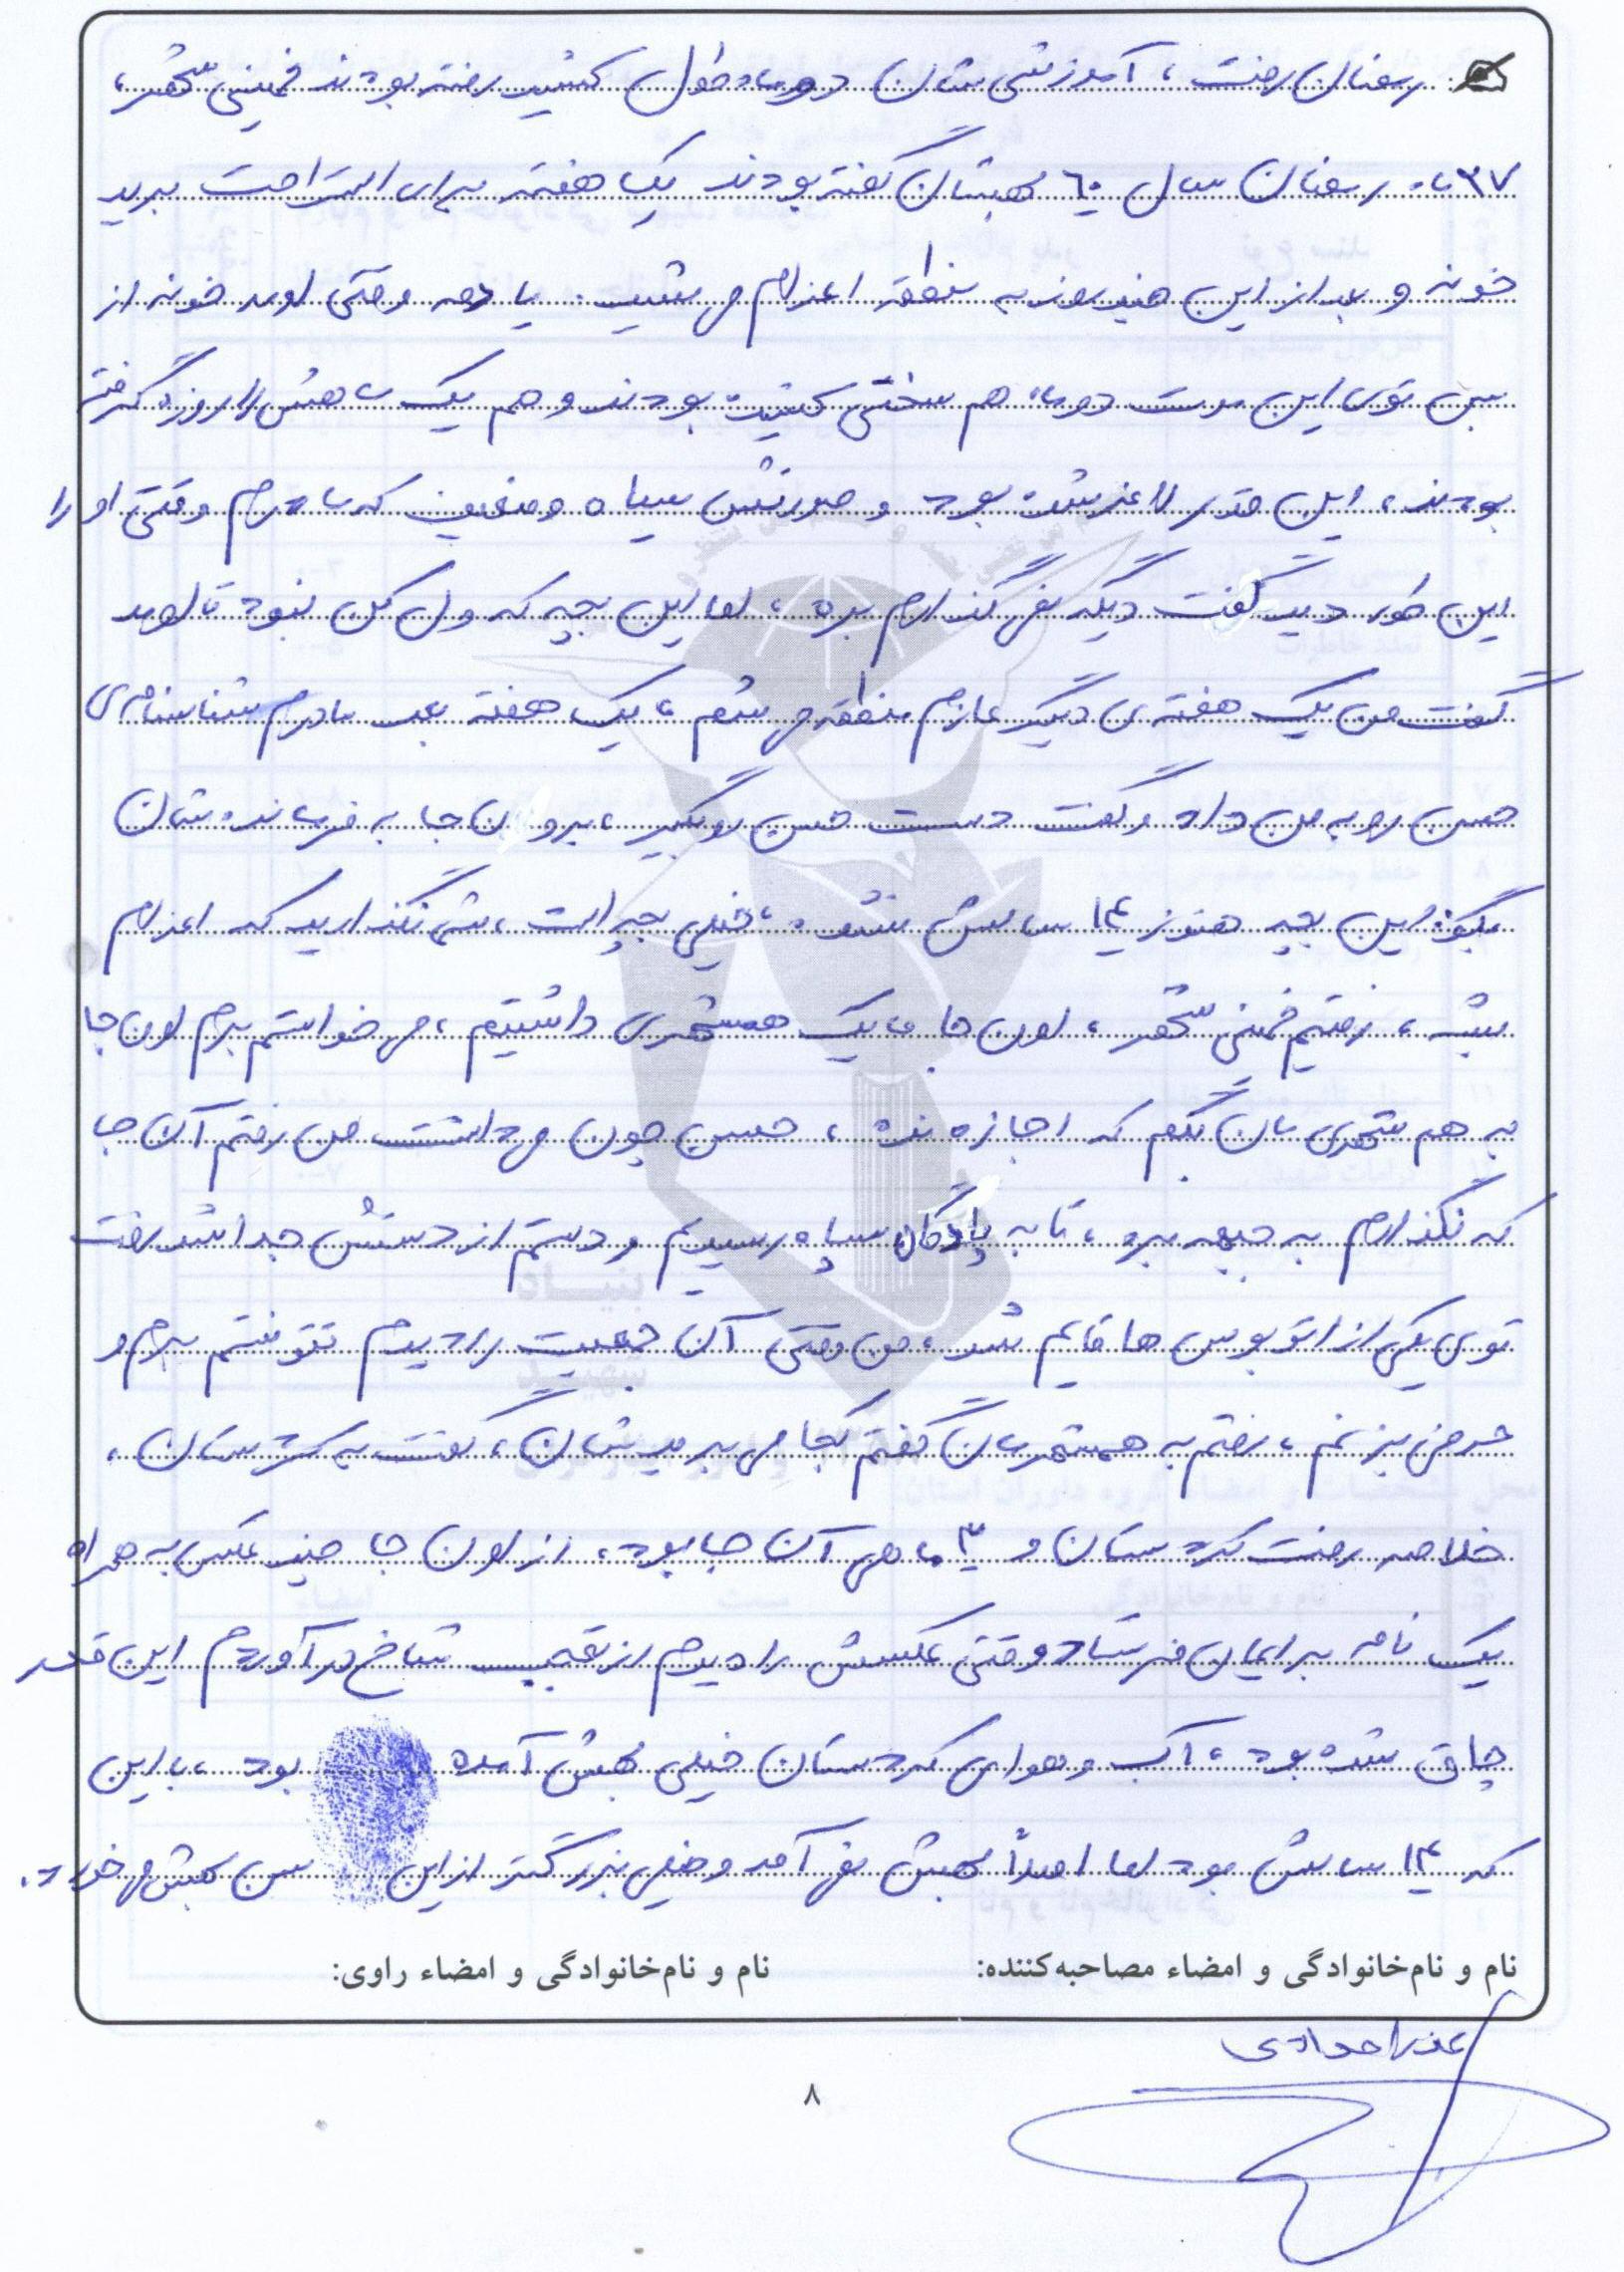 رمضان رفت، آموزشی شان دو ماه طول کشید رفته بودند خمینی شهر،
۲۷ ماه رمضان سال ۶۰ بهشان گفته بودند یک هفته برای استراحت برید
خونه و بعد از این چند روز به منطقه اعزام می شید. یادمه وقتی اومد خونه از
بس توی این مدت دو ماه هم سختی کشیده بودند و هم یک ماهش را روزه گرفته
بودند، این قدر لاغر شده بود و صورتش سیاه و ضعیف که مادرم وقتی او را
این طور دید گفت دیگه نمی گذارم بره، اما این بچه که ول کن نبود تا اومد
گفت من یک هفته ی دیگر عازم منطقه می شم، یک هفته بعد مادرم شناسنامه ی
حسن رو به من داد و گفت دست حسن رو بگیر، برو اون جا به فرمانده شان
بگو: این بچه هنوز ۱۴ سالش نشده، خیلی بچه است، شما نگذارید که اعزام
بشه، رفتم خمینی شهر، اون جا ما یک همشهری داشتیم، می خواستم برم اون جا
به هم شهری مان بگم که اجازه نده، حسن چون می دانست من رفتم آن جا
که نگذارم به جبهه برو، تا به پادگان سپاه رسیدیم و دستم از دستش جدا شد رفت
توی یکی از اتوبوس ها قایم شد، من وقتی آن جمعیت را دیدم نتونستم برم و
حرفی بزنم، رفتم به همشهریمان گفتم کجا می بریدشان، گفت به کردستان،
خلاصه رفت کردستان و ۳ ماهی آن جا بود، از اون جا چند عکس به همراه
یک نامه برایمان فرستاد وقتی عکسش را دیدم از تعجب شاخ در آوردم این قدر
چاق شده بود، آب و هوای کردستان خیلی بهش آمده بود، با این
که ۱۴ سالش بود اما اصلاً بهش نمی آمد و خیلی بزرگتر از این سن بهش می خورد.
نام و نام‌خانوادگی و امضاء مصاحبه‌کننده:
نام و نام‌خانوادگی و امضاء راوی:
عذرا مرادی
۸